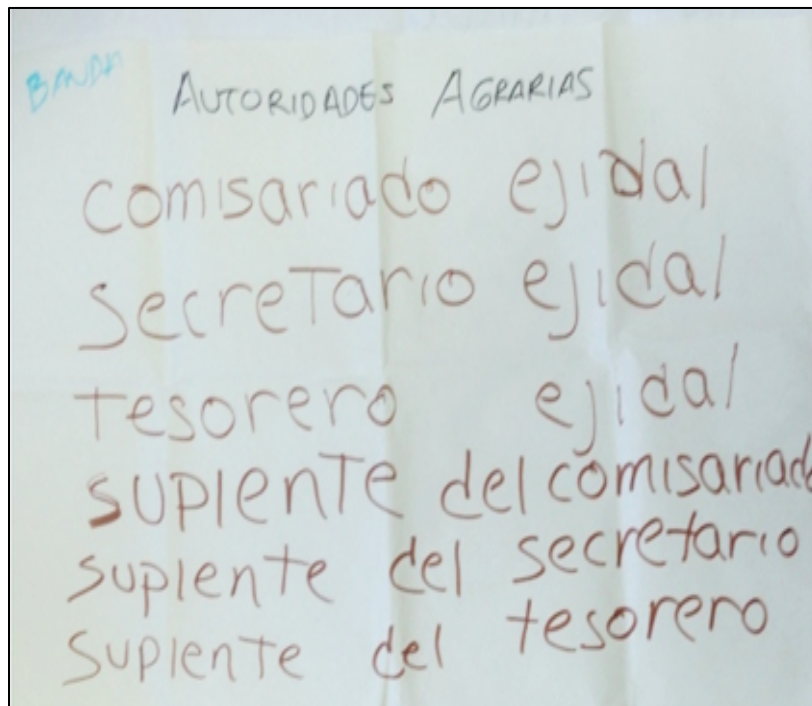 BANDA
AUTORIDADES AGRARIAS
comisariado ejidal
SecreTario ejidal
Tesorero ejidal
SUPlenTe del comisariado
suplente del secretario
SUPlenTe del tesorero